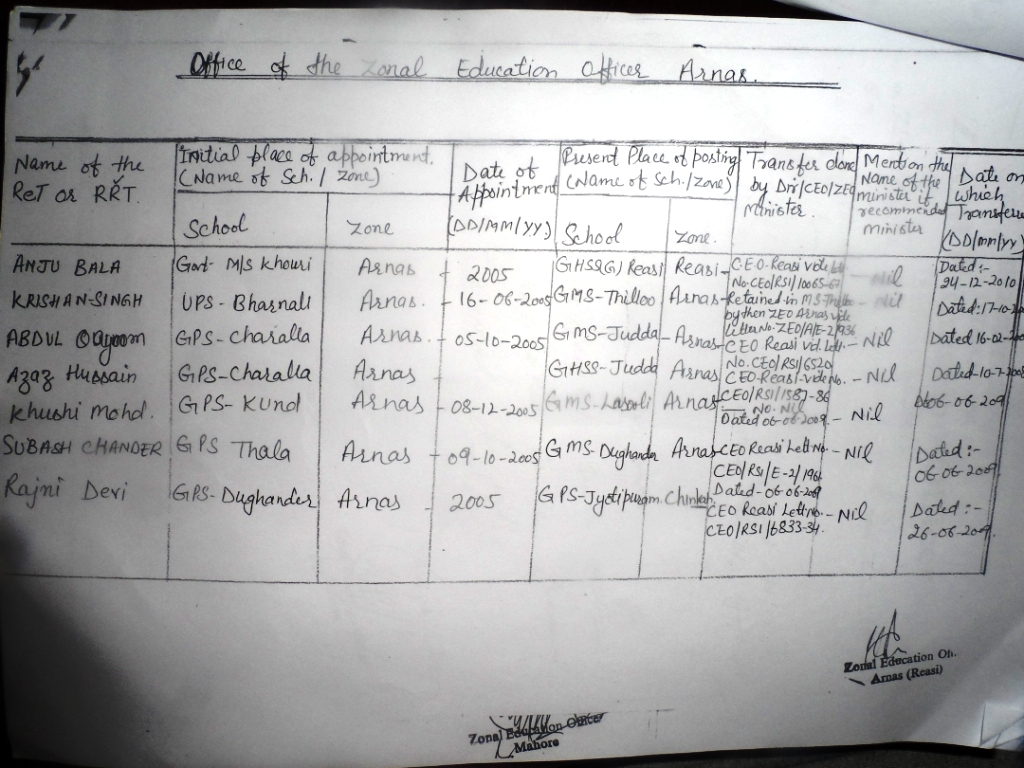 Office of the Zonal Education Officer Arnas.
Name of the ReT or RRT.
Initial place of appointment. (Name of Sch. / Zone)
School
Zone
Date of Appointment (DD/MM/YY)
Present Place of posting (Name of Sch./Zone)
School
Zone.
Transfer done by Dir/CEO/ZEO Minister.
Mention the Name of the minister if recommended minister
Date on which Transfere (DD/MM/YY)
ANJU BALA Govt- M/S Khouri Arnas - 2005 GHSS(G) Reasi Reasi - C.E.O. Reasi vide No. CEO/RSI/10065- - Nil Dated:- 24-12-2010
KRISHAN-SINGH UPS- Bharnali Arnas. - 16-06-2005 GMS-Thilloo Arnas- Retained in MS-Thilloo by then ZEO Arnas vide Letter No. ZEO/A/E-2/936 - Nil Dated:17-10-20
ABDUL Qayoom GPS- Charalla Arnas. - 05-10-2005 GMS-Judda - Arnas- CEO Reasi vd. Lett. No. CEO/RSI/6520 - Nil Dated 16-02-200
Azaz Hussain GPS-Charalla Arnas - GHSS- Judda Arnas CEO-Reasi-vide No. CEO/RSI/1587-86 - Nil Dated-10-7-200
Khushi Mohd. GPS- Kund Arnas - 08-12-2005 GMS- Arnas- No. Nil Dated 06-06-2009. - Nil 06-06-209
SUBASH CHANDER GPS Thala Arnas - 09-10-2005 GMS-Dughander Arnas- CEO Reasi Lett No. CEO/RSI/E-2/196 Dated-06-06-209 - Nil Dated:- 06-06-209
Rajni Devi GPS-Dughander Arnas - 2005 GPS-Jyotipuram CEO Reasi Lett no. CEO/RSI/6833-34. - Nil Dated:- 26-06-209.
Zonal Education Off.
Arnas (Reasi)
Zonal Education Officer
Mahore